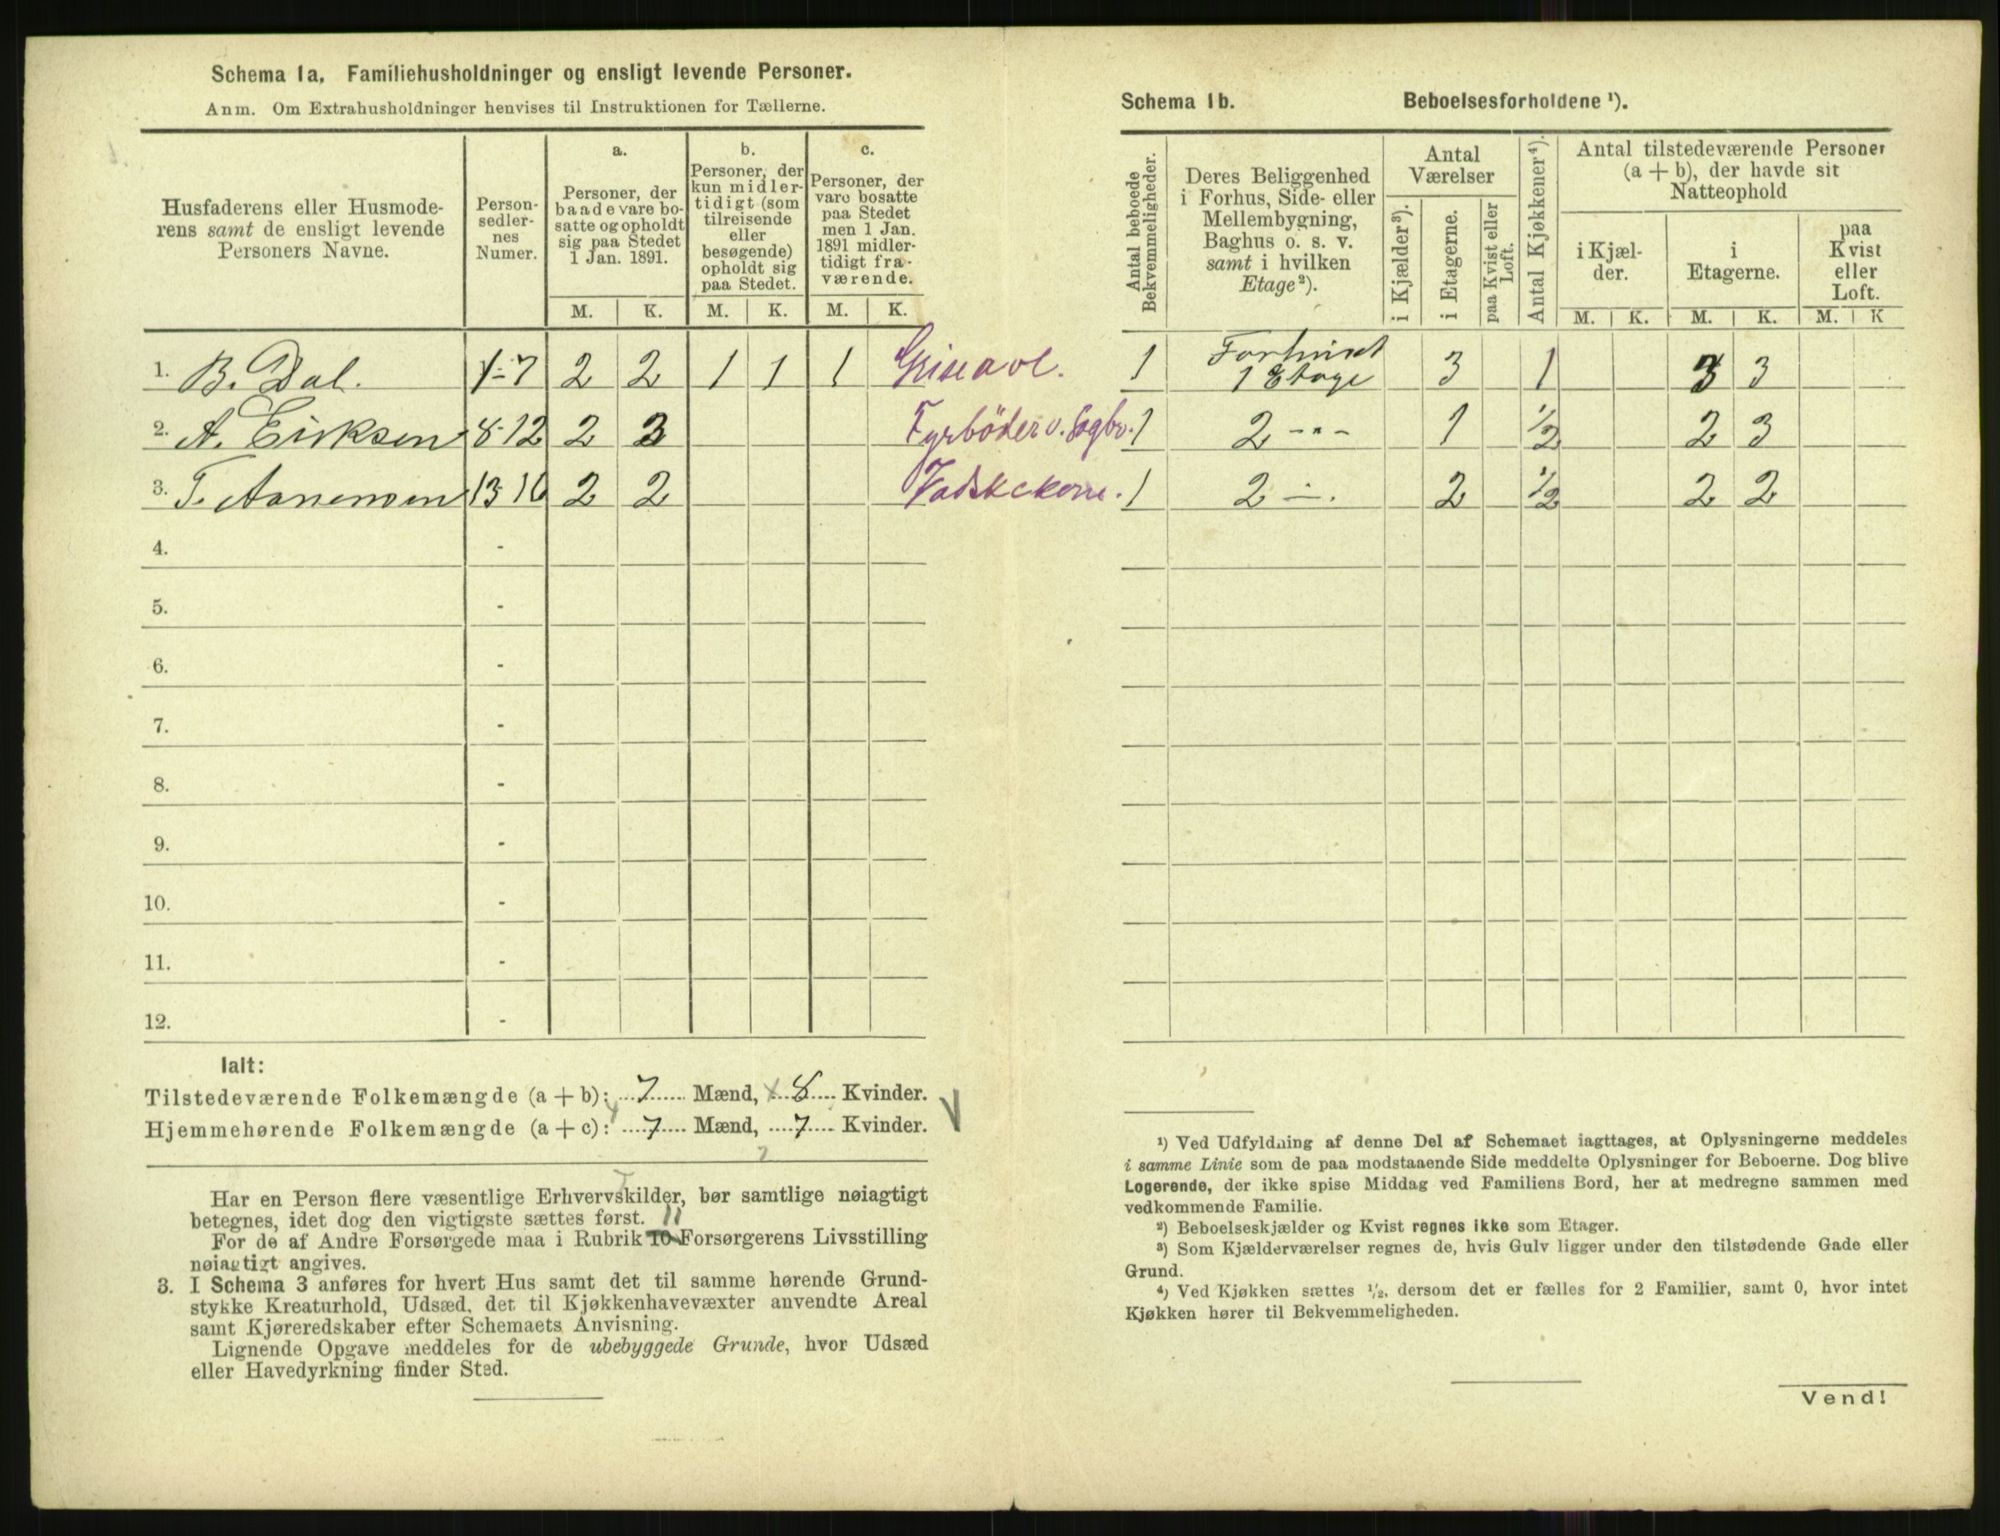 Schema 1a. Familiehusholdninger og ensligt levende Personer.
Anm. Om Extrahusholdninger henvises til Instruktionen for Tællerne.
Husfaderens eller Husmode-
rens samt de ensligt levende
Personers Navne.
Person-
sedler-
nes
Numer.
a.
Personer, der
baade vare bo-
satte og opholdt
sig paa Stedet
1 Jan. 1891.
b.
Personer, der
kun midler-
tidigt (som
tilreisende
eller
besøgende)
opholdt sig
paa Stedet.
c.
Personer, der
vare bosatte
paa Stedet
men 1 Jan.
1891 midler-
tidigt fra-
værende.
M. K. M. K. M. K.
1. B. Dal. 1-7 2 2 1 1 1
2. A. Eriksen 8-12 2 3 Fyrböder v.
3. T. 13 16 2 2
4. -
5. -
6. -
7. -
8. -
9. -
10. -
11. -
12. -
Ialt:
Tilstedeværende Folkemængde (a + b): 7 Mænd, 8 Kvinder.
Hjemmehørende Folkemængde (a + c): 7 Mænd, 7 Kvinder.
Har en Person flere væsentlige Erhvervskilder, bør samtlige nøiagtigt
betegnes, idet dog den vigtigste sættes først.
11
For de af Andre Forsørgede maa i Rubrik 10 Forsørgerens Livsstilling
nøiagtigt angives.
3. I Schema 3 anføres for hvert Hus samt det til samme hørende Grund-
stykke Kreaturhold, Udsæd, det til Kjøkkenhavevæxter anvendte Areal
samt Kjøreredskaber efter Schemaets Anvisning.
Lignende Opgave meddeles for de ubebyggede Grunde, hvor Udsæd
eller Havedyrkning finder Sted.
Schema 1b. Beboelsesforholdene ¹).
Antal beboede
Bekvemmeligheder.
Deres Beliggenhed
i Forhus, Side- eller
Mellembygning,
Baghus o. s. v.
samt i hvilken
Etage²).
Antal
Værelser
i Kjælder³).
i Etagerne.
paa Kvist eller
Loft.
Antal Kjøkkener⁴).
Antal tilstedeværende Personer
(a + b), der havde sit
Natteophold
i Kjæl-
der.
i
Etagerne.
paa
Kvist
eller
Loft.
M. K. M. K. M. K
1 Forhuset
1 Etage 3 1 3 3
1 2 -"- 1 1/2 2 3
1 2 -. 2 1/2 2 2
¹) Ved Udfyldning af denne Del af Schemaet iagttages, at Oplysningerne meddeles
i samme Linie som de paa modstaaende Side meddelte Oplysninger for Beboerne. Dog blive
Logerende, der ikke spise Middag ved Familiens Bord, her at medregne sammen med
vedkommende Familie.
²) Beboelseskjælder og Kvist regnes ikke som Etager.
³) Som Kjælderværelser regnes de, hvis Gulv ligger under den tilstødende Gade eller
Grund.
⁴) Ved Kjøkken sættes ½, dersom det er fælles for 2 Familier, samt 0, hvor intet
Kjøkken hører til Bekvemmeligheden.
Vend!